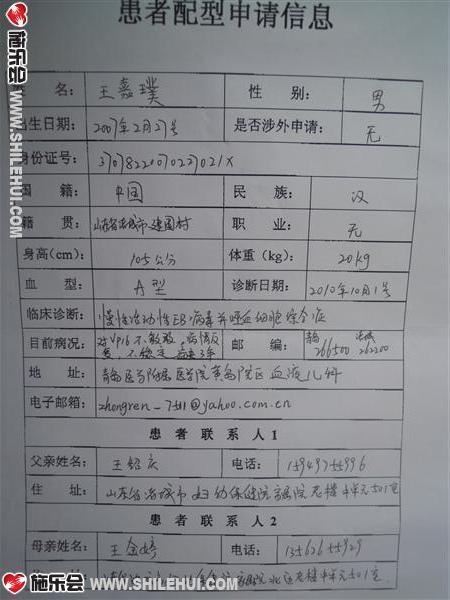 患者配型申请信息
施乐会
WWW.SHILEHUI.COM
名： 王嘉璞 性 别： 男
出生日期： 2007年2月27号 是否涉外申请： 无
身份证号： 37078220070227021X
国 籍： 中国 民 族： 汉
籍 贯： 山东省诸城市建国村 职 业： 无
身高(cm)： 105公分 体重（kg）： 20kg
血 型： A型 诊断日期： 2010年10月1号
临床诊断： 慢性活动性EB病毒并噬血细胞综合症
目前病况： 对VP16不敏感，病情反复，不稳定 邮 编： 266500 262200
地 址： 青岛医学院附属医院黄岛院区血液儿科
电子邮箱： zhongren_7511@yahoo.com.cn
患 者 联 系 人 1
父亲姓名： 王绍庆 电话：
住 址： 山东省诸城市妇幼保健院家属院老楼中单元501室
患 者 联 系 人 2
母亲姓名： 王金婷 电话：
老楼中单元501室
施乐会 WWW.SHILEHUI.COM 施乐会